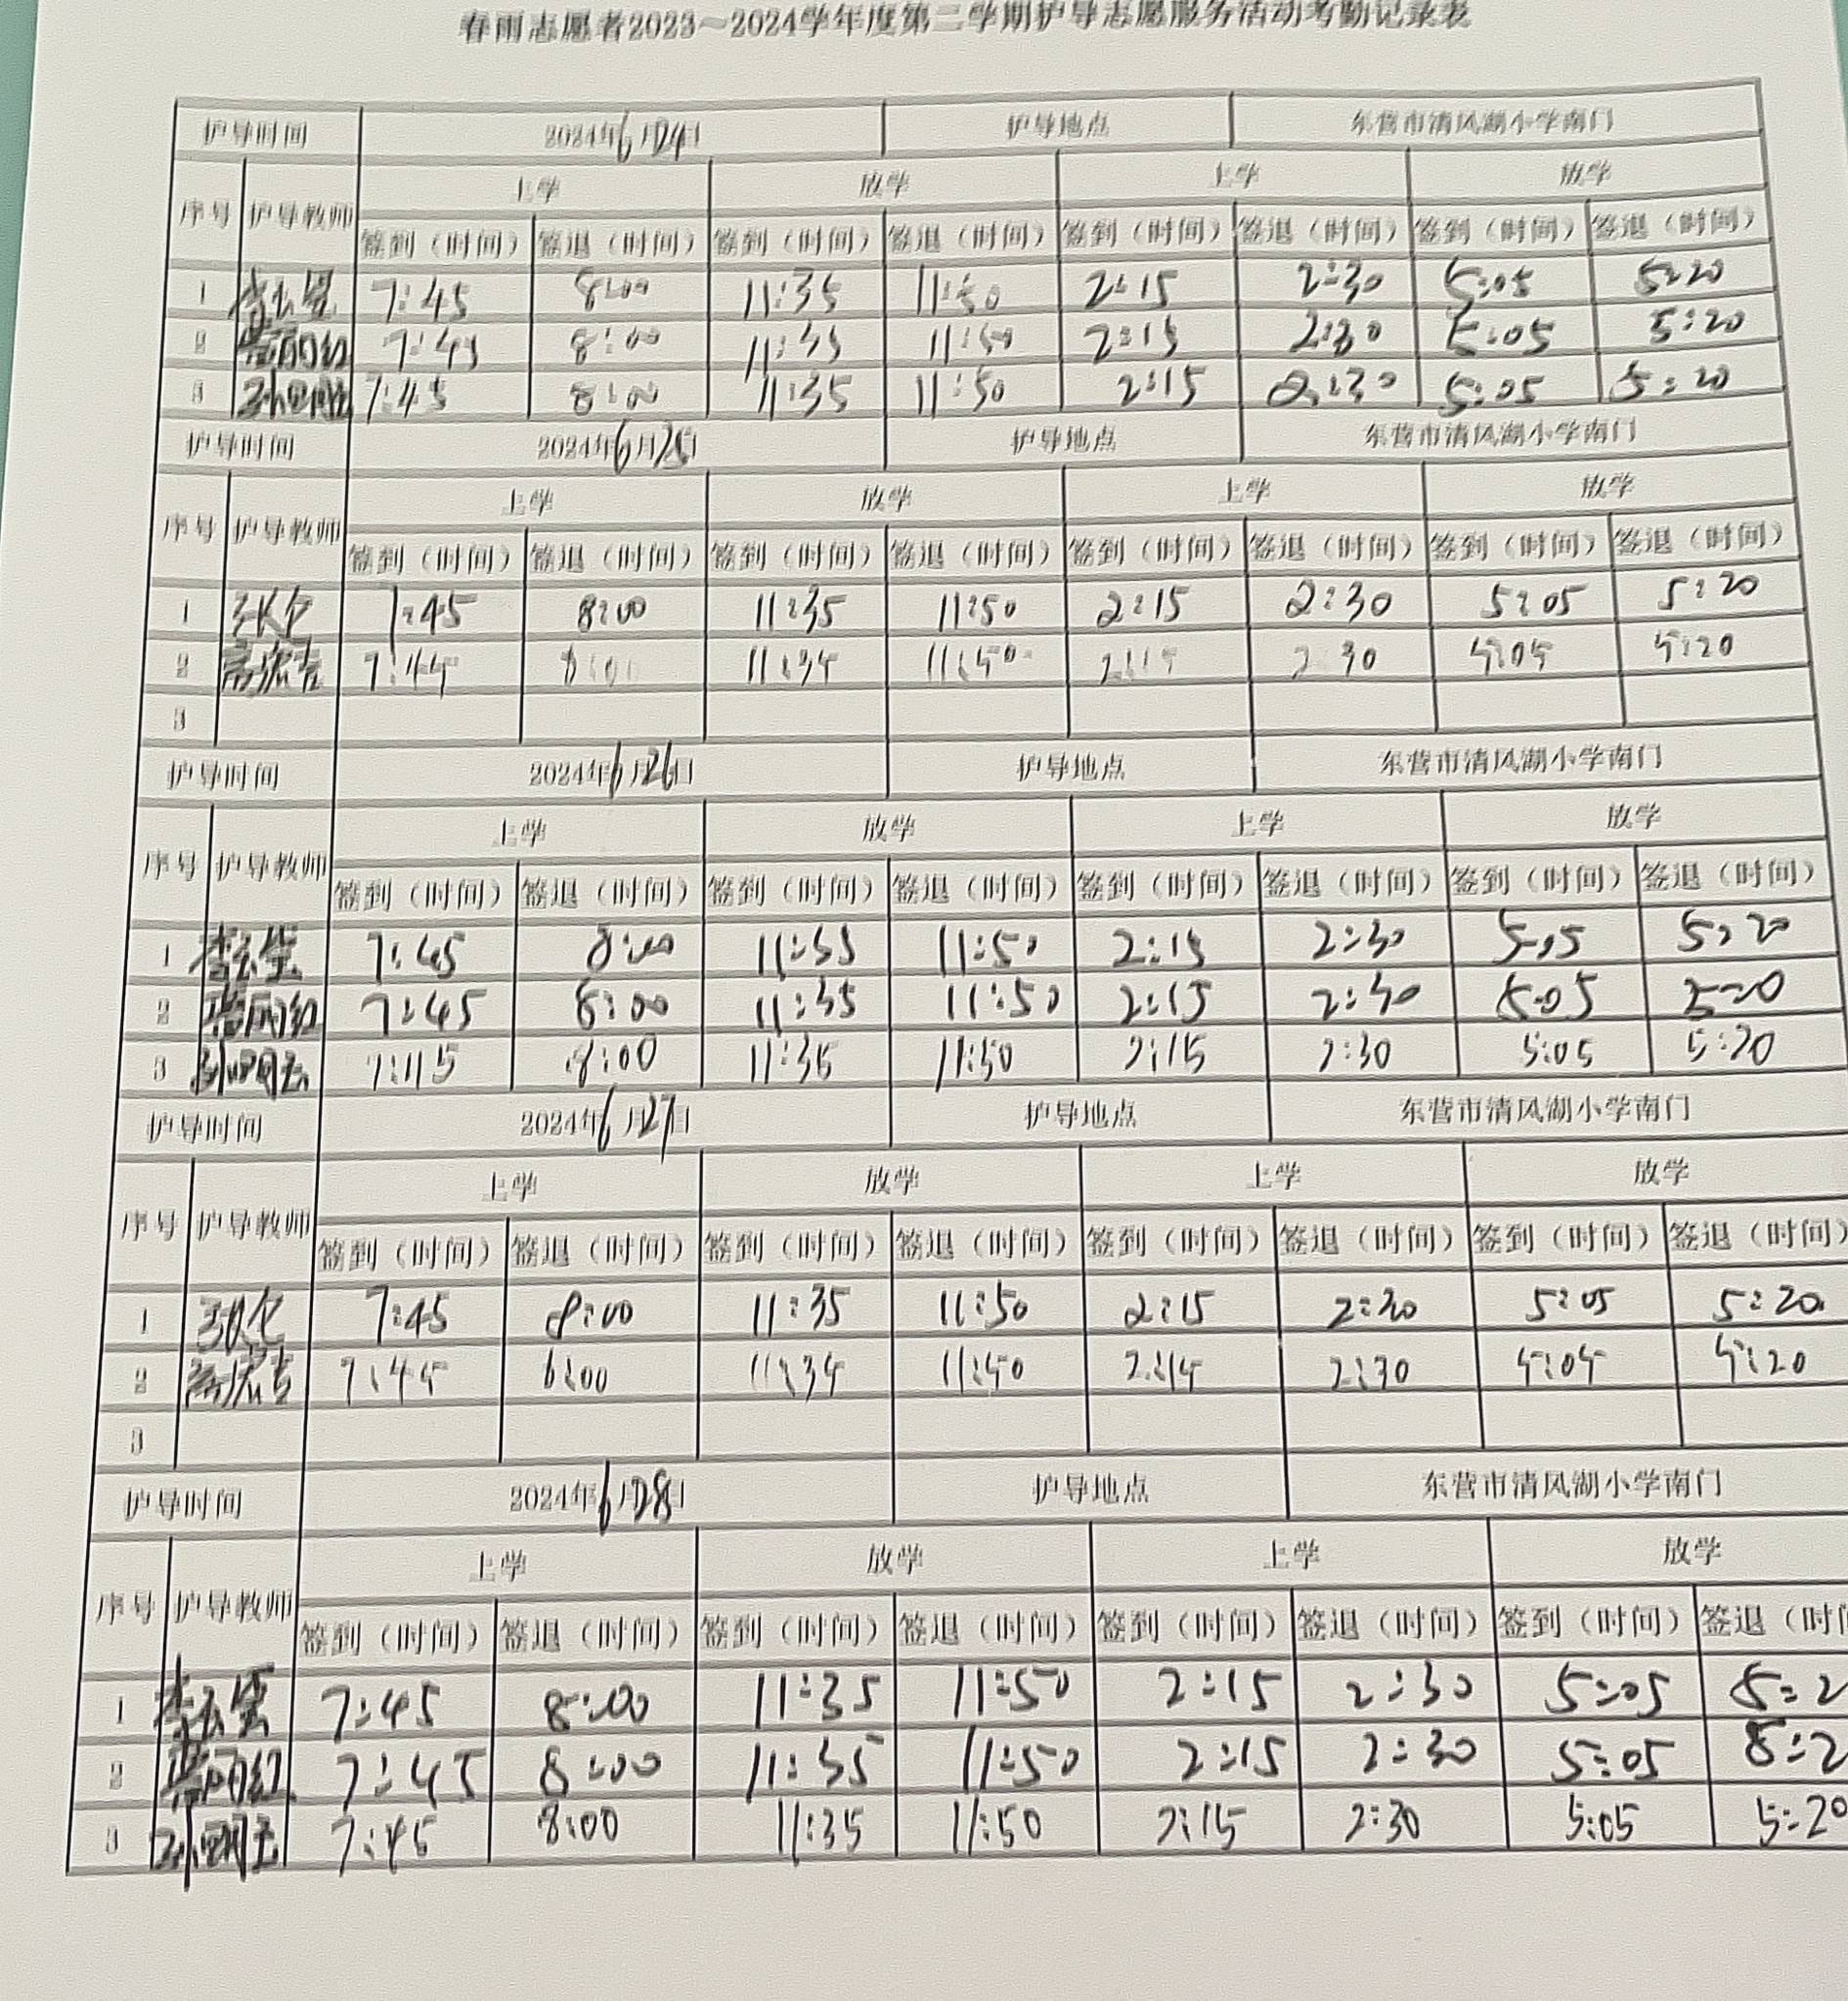 春雨志愿者2023～2024学年度第二学期护导志愿服务活动考勤记录表
护导时间 2024年6月24日 护导地点 东营市清风湖小学南门
序号 护导教师 上学 放学 上学 放学
签到（时间） 签退（时间） 签到（时间） 签退（时间） 签到（时间） 签退（时间） 签到（时间） 签退（时间）
1 7:45 8:00 11:35 11:50 2:15 2:30 5:05 5:20
2 7:45 8:00 11:35 11:50 2:15 2:30 5:05 5:20
3 7:45 8:00 11:35 11:50 2:15 2:30 5:05 5:20
护导时间 2024年6月25日 护导地点 东营市清风湖小学南门
序号 护导教师 上学 放学 上学 放学
签到（时间） 签退（时间） 签到（时间） 签退（时间） 签到（时间） 签退（时间） 签到（时间） 签退（时间）
1 7:45 8:00 11:35 11:50 2:15 2:30 5:05 5:20
2 7:45 8:00 11:35 11:50 2:15 2:30 5:05 5:20
3
护导时间 2024年6月26日 护导地点 东营市清风湖小学南门
序号 护导教师 上学 放学 上学 放学
签到（时间） 签退（时间） 签到（时间） 签退（时间） 签到（时间） 签退（时间） 签到（时间） 签退（时间）
1 7:45 8:00 11:35 11:50 2:15 2:30 5:05 5:20
2 7:45 8:00 11:35 11:50 2:15 2:30 5:05 5:20
3 7:45 8:00 11:35 11:50 2:15 2:30 5:05 5:20
护导时间 2024年6月27日 护导地点 东营市清风湖小学南门
序号 护导教师 上学 放学 上学 放学
签到（时间） 签退（时间） 签到（时间） 签退（时间） 签到（时间） 签退（时间） 签到（时间） 签退（时间）
1 7:45 8:00 11:35 11:50 2:15 2:30 5:05 5:20
2 7:45 8:00 11:35 11:50 2:15 2:30 5:05 5:20
3
护导时间 2024年6月28日 护导地点 东营市清风湖小学南门
序号 护导教师 上学 放学 上学 放学
签到（时间） 签退（时间） 签到（时间） 签退（时间） 签到（时间） 签退（时间） 签到（时间） 签退（时
1 7:45 8:00 11:35 11:50 2:15 2:30 5:05 5:2
2 7:45 8:00 11:35 11:50 2:15 2:30 5:05 5:2
3 7:45 8:00 11:35 11:50 2:15 2:30 5:05 5:20